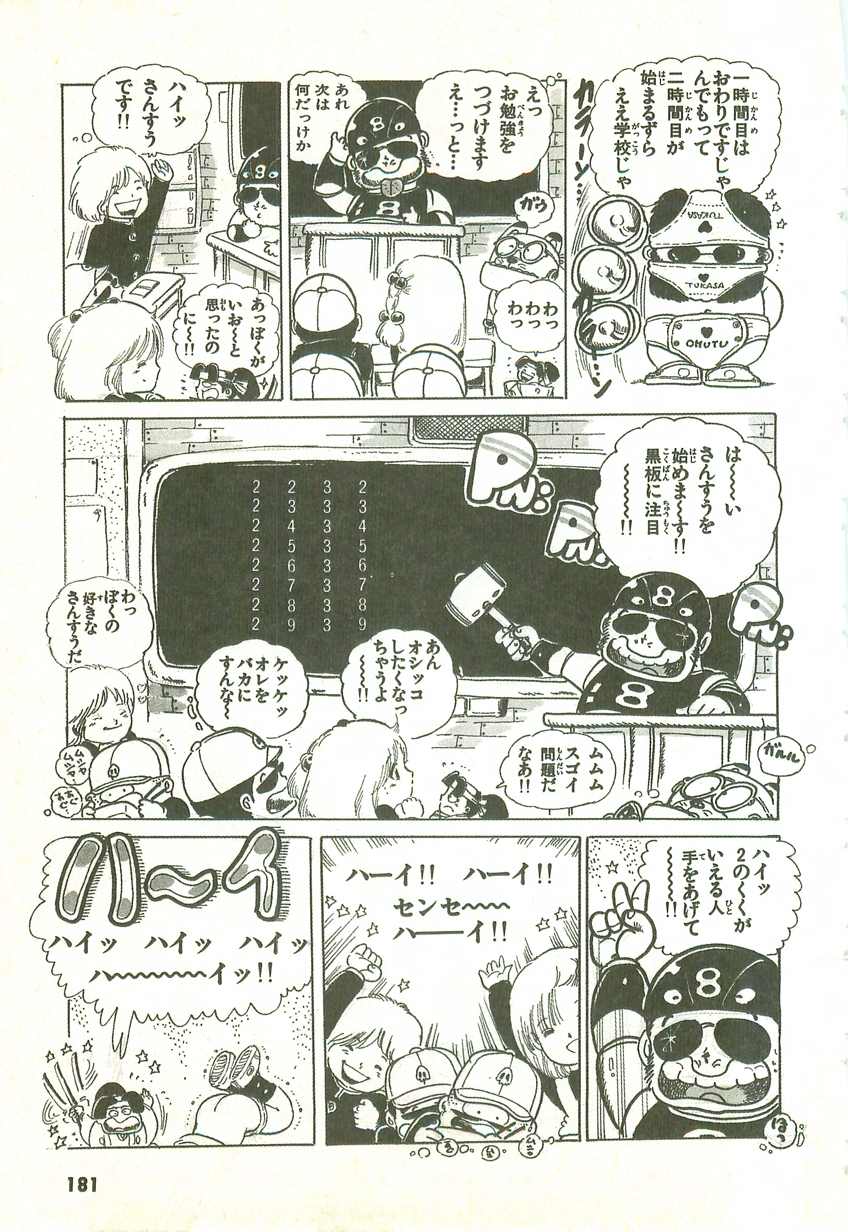 一時間目は
おわりですじゃ
んでもって
二時間目が
始まるずら
ええ学校じゃ
カラーン…
TUKASA
TUKASA
OHUTU
えっ
お勉強を
つづけます
え…っと…
あれ
次は
何だっけか
ガウ
わっ
わっ
わっ
ハイッ
さんすう
です!!
あっぽくが
いお〜と
思ったの
に〜!!
は〜〜い
さんすうを
始めま〜す!!
黒板に注目
〜〜〜〜!!
PN:
PN:
PN:
2 2 3 2
2 3 3 3
2 4 3 4
2 5 3 5
2 6 3 6
2 7 3 7
2 8 3 8
2 9 3 9
わっ
ぼくの
好きな
さんすうだ
ケッケッ
オレを
バカに
すんな〜
あん
オシッコ
したくなっ
ちゃうよ
〜〜!!
ムムム
スゴイ
問題だ
なあ!!
ガルル
ムシャ
ムシャ
ハイッ
2のくくが
いえる人
手をあげて
〜〜〜〜!!
ほっ
ハーイ!! ハーイ!!
センセ〜〜〜
ハ──イ!!
ハ〜イ
ハイッ ハイッ ハイッ
ハ〜〜〜〜〜〜イッ!!
181